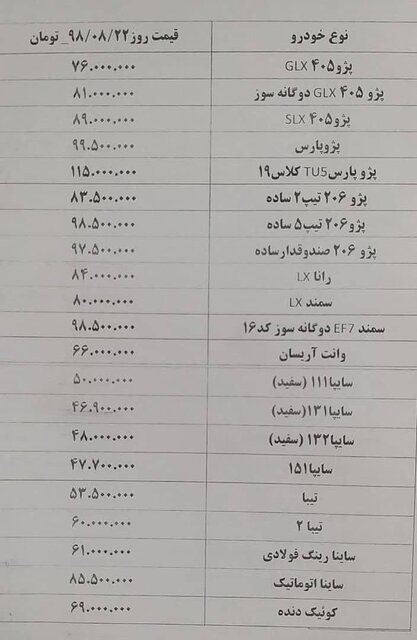 نوع خودرو قیمت روز ۹۸/۰۸/۲۲_ تومان
پژو۴۰۵ GLX ۷۶.۰۰۰.۰۰۰
پژو ۴۰۵ GLX دوگانه سوز ۸۱.۰۰۰.۰۰۰
پژو۴۰۵ SLX ۸۹.۰۰۰.۰۰۰
پژوپارس ۹۹.۵۰۰.۰۰۰
پژو پارس TU5 کلاس۱۹ ۱۱۵.۰۰۰.۰۰۰
پژو ۲۰۶ تیپ۲ ساده ۸۳.۵۰۰.۰۰۰
پژو۲۰۶ تیپ۵ ساده ۹۸.۵۰۰.۰۰۰
پژو ۲۰۶ صندوقدارساده ۹۷.۵۰۰.۰۰۰
رانا LX ۸۴.۰۰۰.۰۰۰
سمند LX ۸۰.۰۰۰.۰۰۰
سمند EF7 دوگانه سوز کد۱۶ ۹۸.۵۰۰.۰۰۰
وانت آریسان ۶۶.۰۰۰.۰۰۰
سایپا۱۱۱ (سفید) ۵۰.۰۰۰.۰۰۰
سایپا۱۳۱(سفید) ۴۶.۹۰۰.۰۰۰
سایپا۱۳۲ (سفید) ۴۸.۰۰۰.۰۰۰
سایپا۱۵۱ ۴۷.۷۰۰.۰۰۰
تیبا ۵۳.۵۰۰.۰۰۰
تیبا ۲ ۶۰.۰۰۰.۰۰۰
ساینا رینگ فولادی ۶۱.۰۰۰.۰۰۰
ساینا اتوماتیک ۸۵.۵۰۰.۰۰۰
کوئیک دنده ۶۹.۰۰۰.۰۰۰